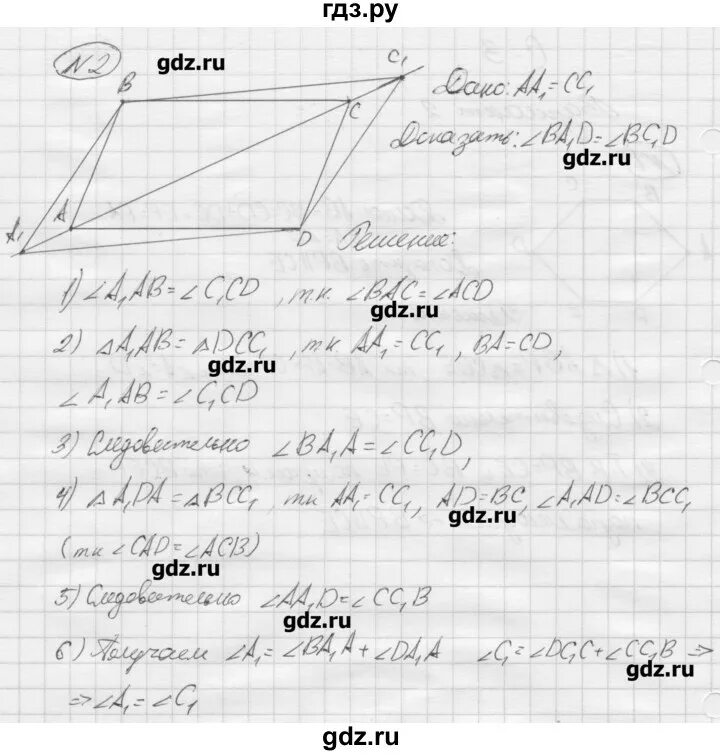 гдз.ру
№2
gdz.ru
B
C1
C
A
A1
D
Дано: AA1 = CC1
Доказать: ∠BA1D = ∠BC1D
gdz.ru
Решение:
1) ∠A1AB = ∠C1CD , т.к. ∠BAC = ∠ACD
gdz.ru
2) △A1AB = △DCC1 , т.к. AA1 = CC1 , BA = CD,
gdz.ru
∠A1AB = ∠C1CD
3) Следовательно ∠BA1A = ∠CC1D,
gdz.ru
4) △A1DA = △BCC1 , тк AA1 = CC1 , AD = BC, ∠A1AD = ∠BCC1
gdz.ru
(тк ∠CAD = ∠ACB)
gdz.ru
5) Следовательно ∠AA1D = ∠CC1B
gdz.ru
6) Получаем ∠A1 = ∠BA1A + ∠DA1A ∠C1 = ∠DC1C + ∠CC1B ⇒
gdz.ru
⇒ ∠A1 = ∠C1
gdz.ru